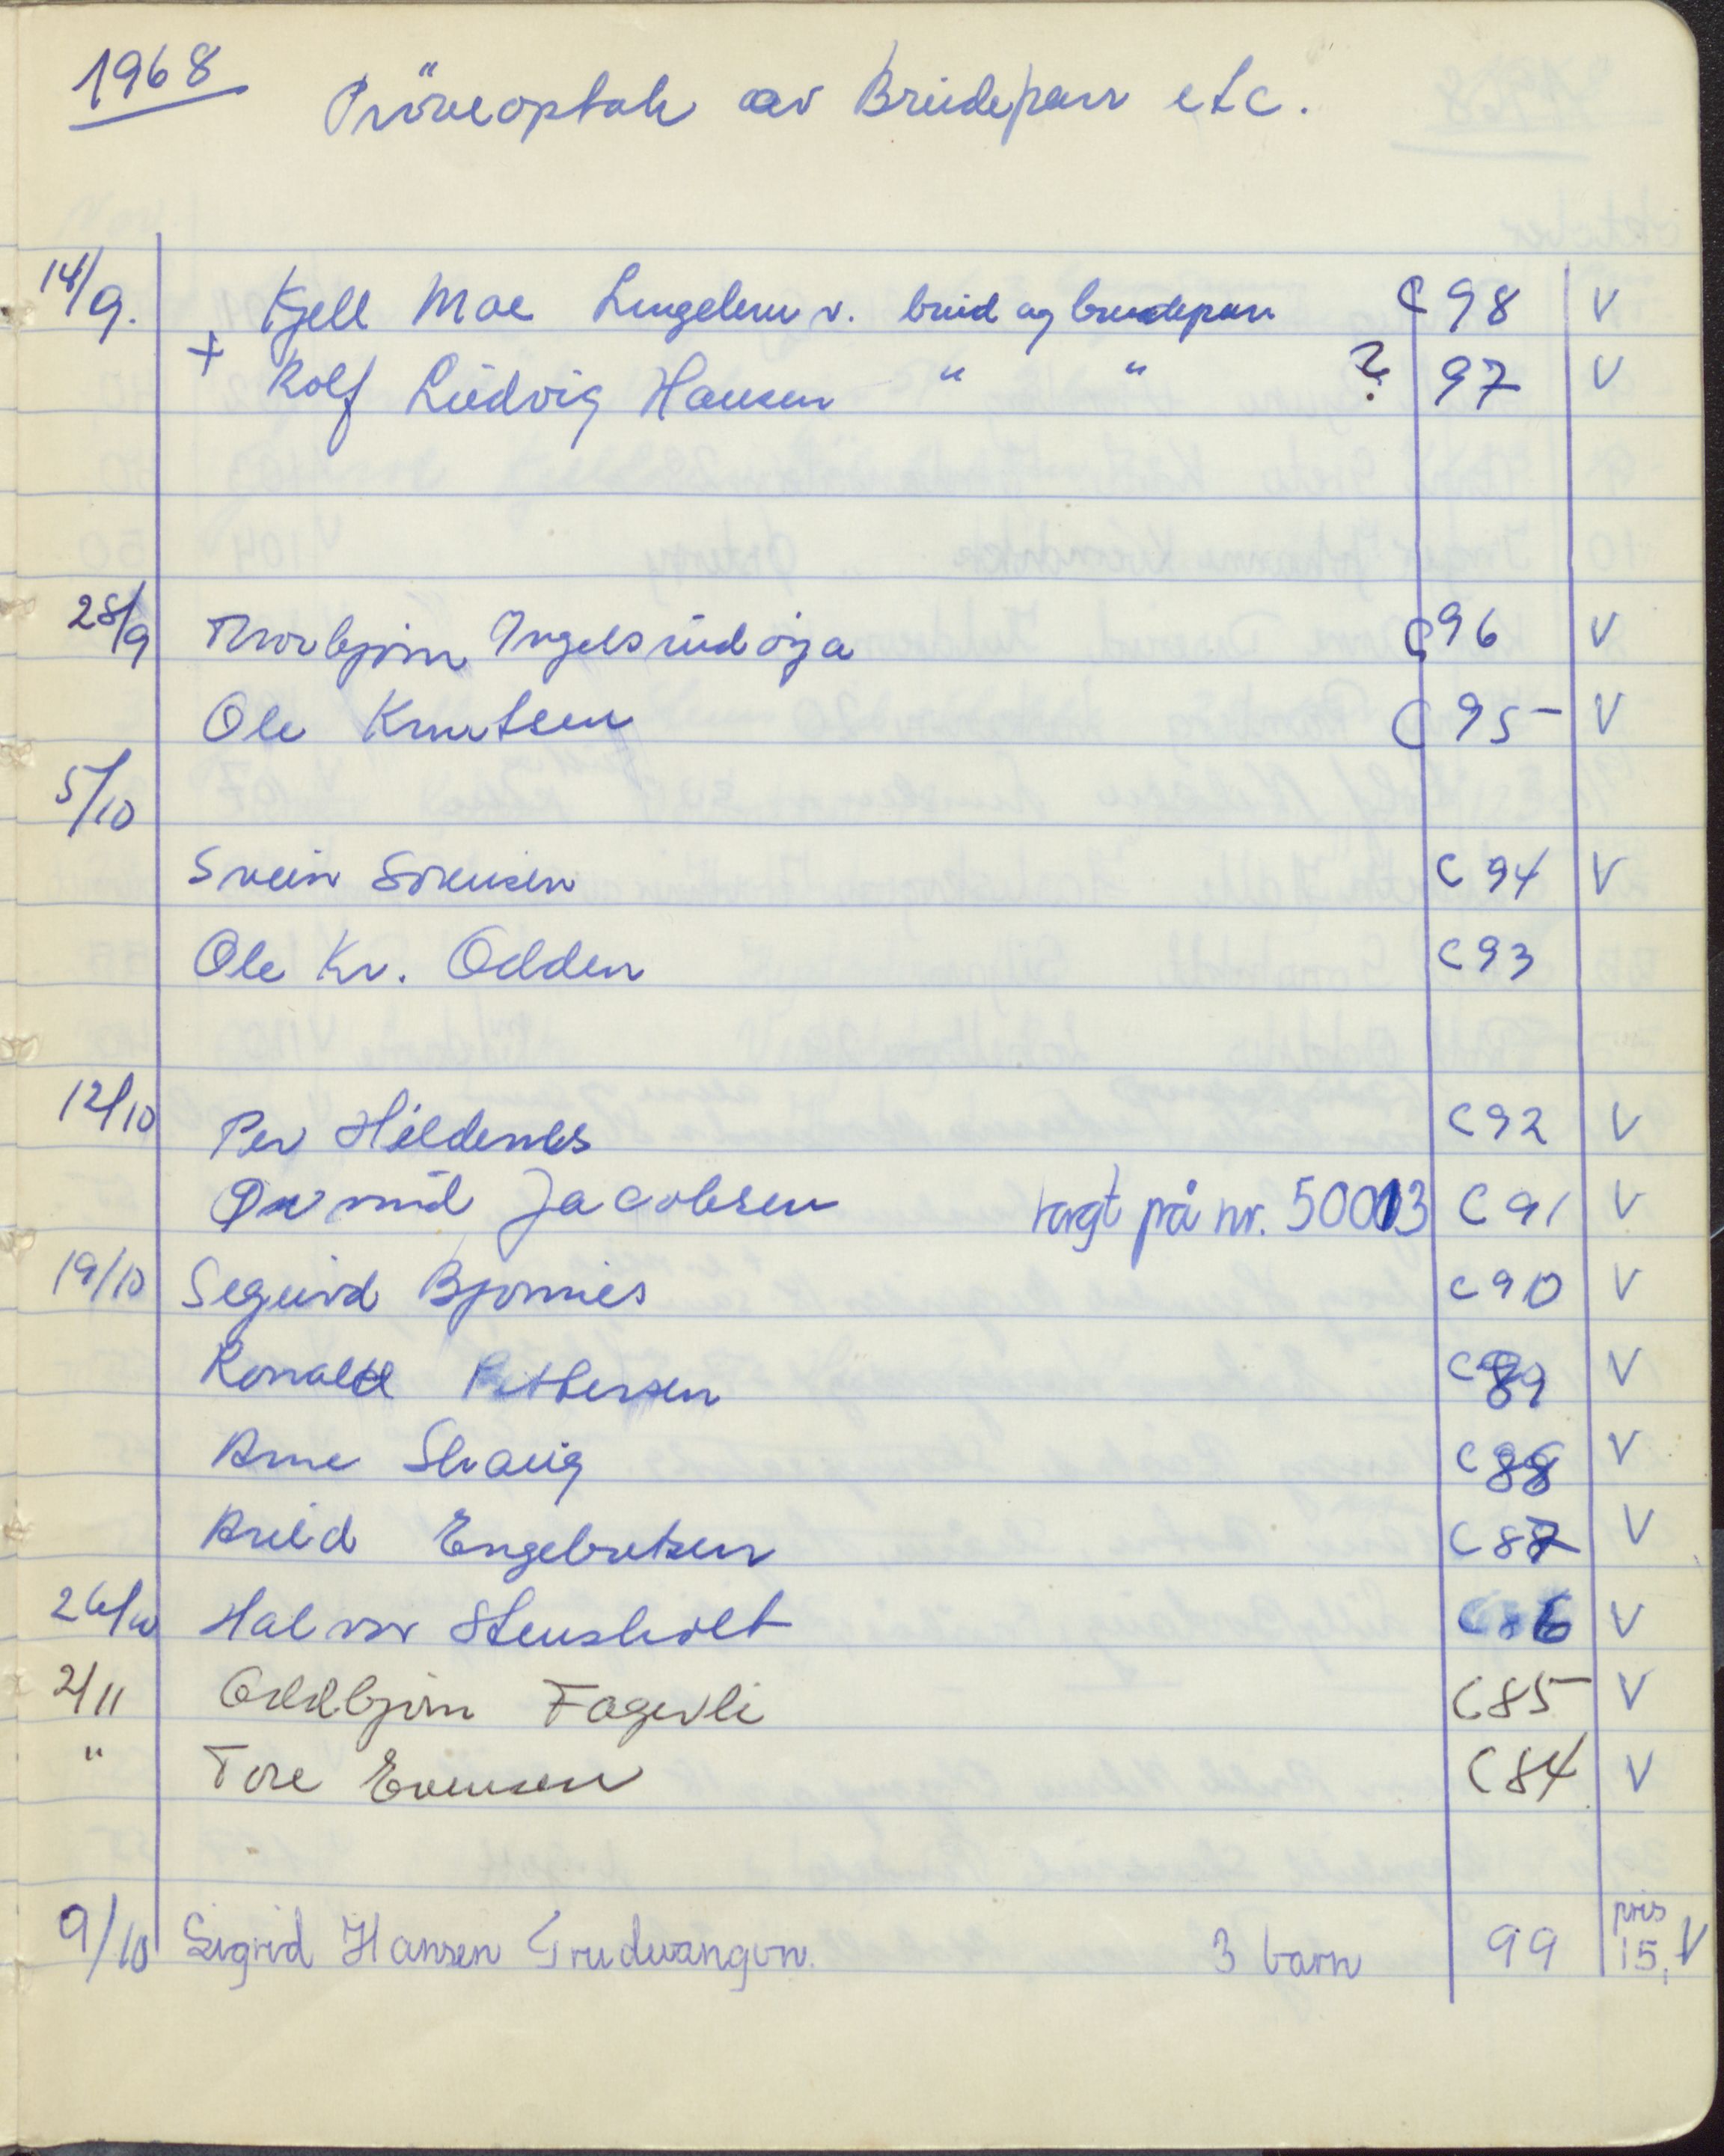 1968
Pröveoptak av Brudepar etc.
14/9. Kjell Moe Lengelem v. brud og brudepar C 98 V
+ Rolf Ludvig Hansen " " ? 97 V
28/9 Thorbjörn Ingelsrudöya C 96 V
Ole Knutsen C 95 V
5/10
Svein Sörensen C 94 V
Ole Kr. Odden C 93
12/10 Per Hildernes C 92 V
Ørnulf Jacobsen valgt på nr. 50013 C 91 V
19/10 Segurd Bjønnes C 90 V
Ronald Pettersen C 89 V
Arne Skaug C 88 V
Arild Engebretsen C 87 V
26/10 Halvor Stensholt C 86 V
2/11 Oddbjörn Fagerli C 85 V
" Tore Evensen C 84 V
9/10 Sigrid Hansen Trudvangvn. 3 barn 99 pris 15, V